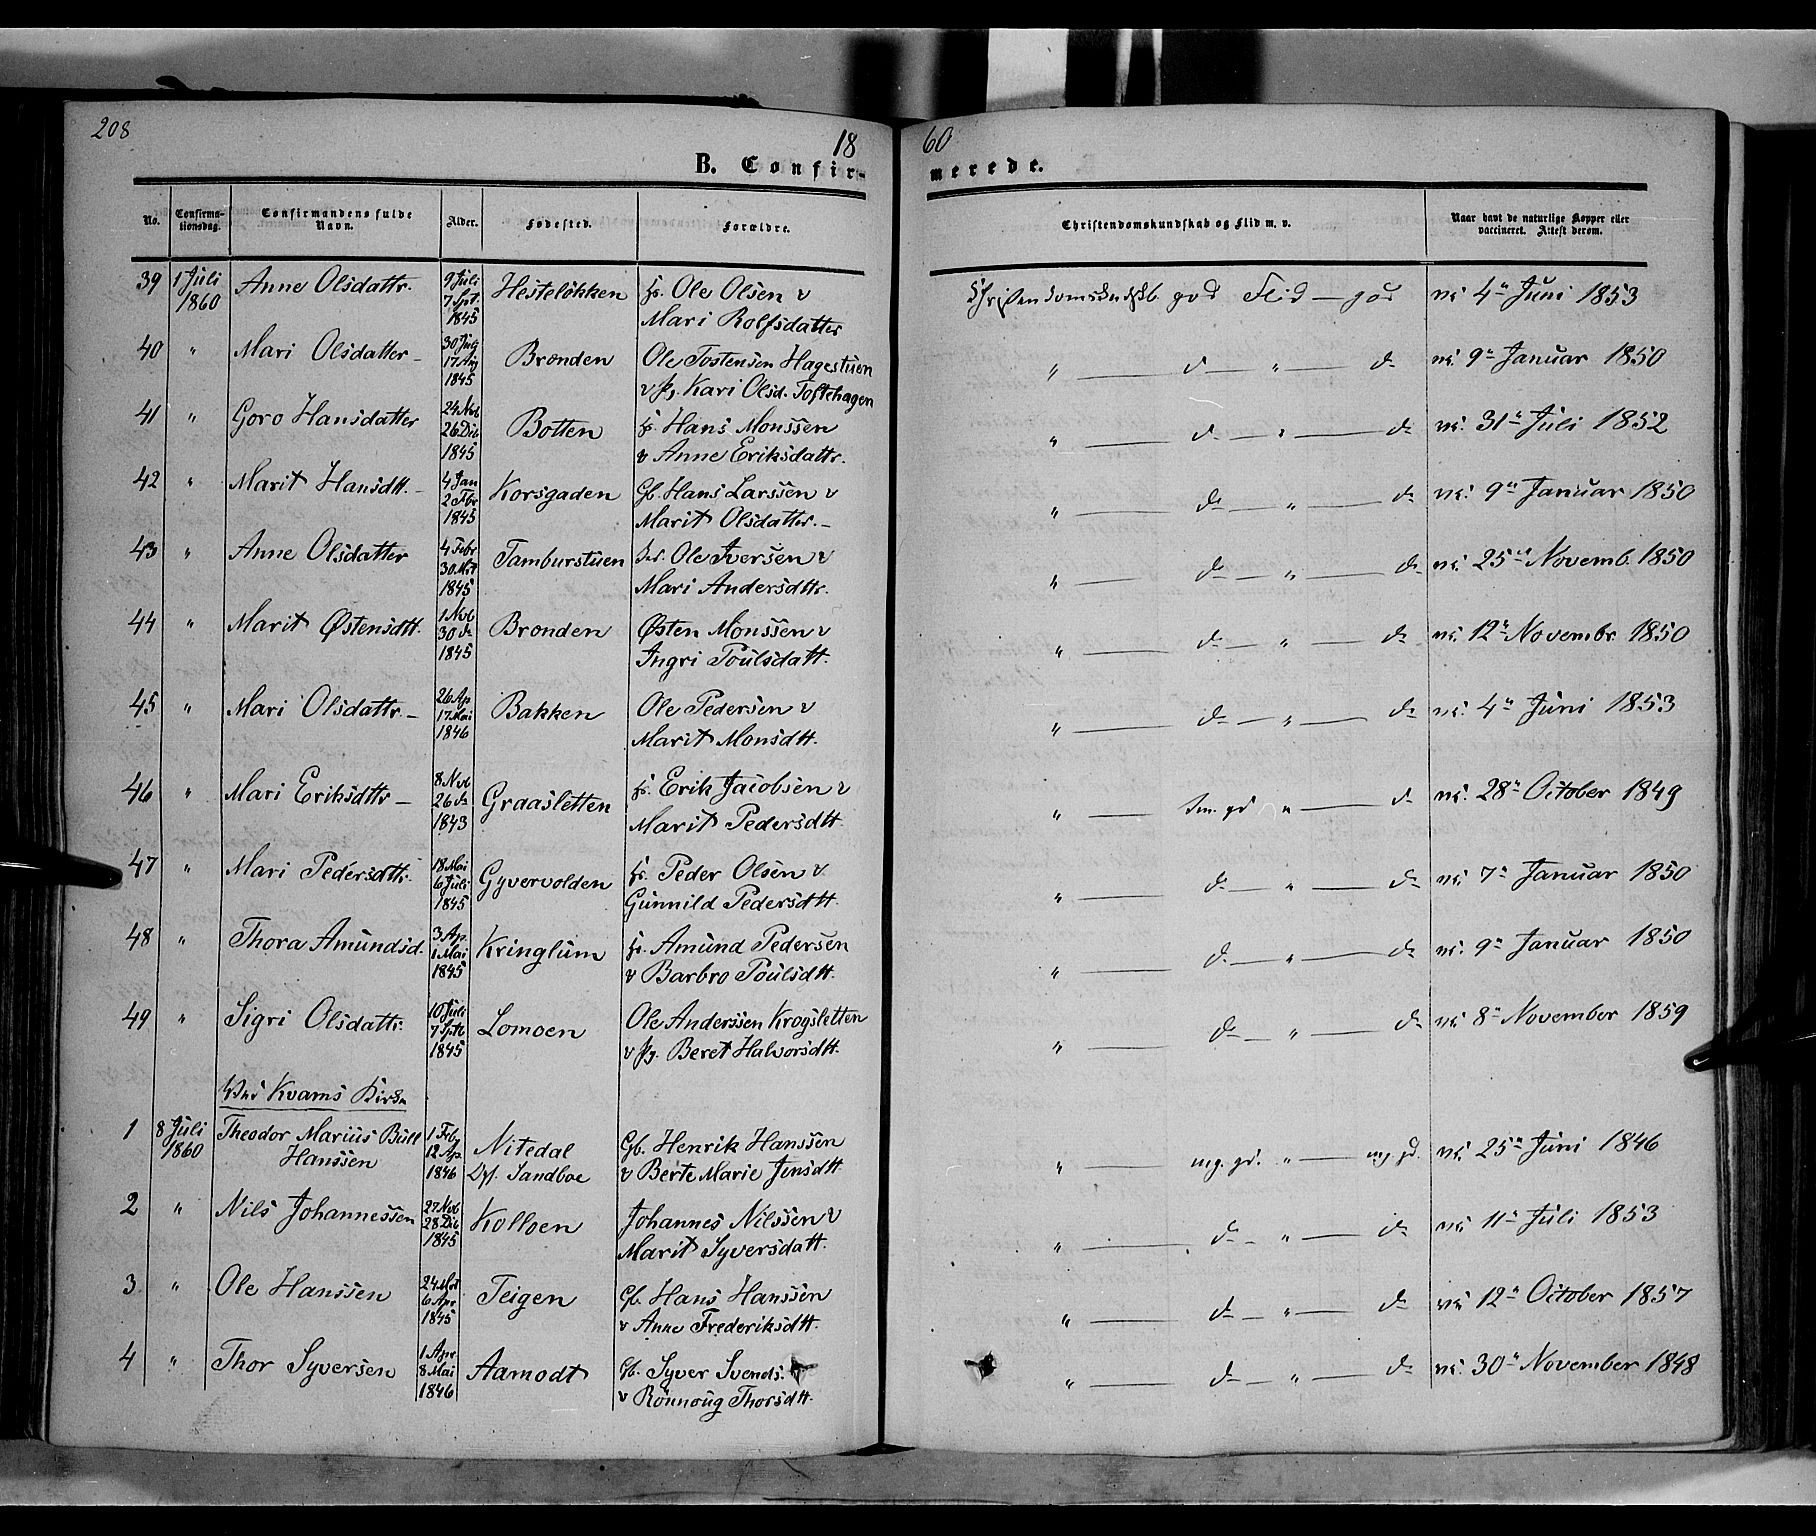 208
18 60
B. Confir- merede.
No. Confirmationsdag. Confirmandens fulde Navn. Alder. Fødested. Forældre. Christendomskundskab og Flid m. v. Naar havt de naturlige Kopper eller vaccineret. Attest derom.
39 1 Juli 1860 Anne Olsdattr. 9 Juli 7 Spt. 1845 Hesteløkken Hs. Ole Olsen v Mari Rolfsdatter Christendomskundskb. god Flid — god vc. 4de Juni 1853
40 " Mari Olsdatter 30 Julj 17 Aug 1845 Brønden Ole Tostensen Hagestuen v Pg. Kari Olsd. Toftehagen " — do — " — do vc. 9de Januar 1850
41 " Goro Hansdatter 24 Nob 26 Dib 1845 Botten Hs. Hans Monssen v Anne Eriksdattr. " — do — " — do vc. 31te Juli 1852
42 " Marit Hansdtt. 4 Jan 2 Fbr 1845 Korsgaden Gb. Hans Larssen v Marit Olsdattr. " — do — " — do vc. 9de Januar 1850
43 " Anne Olsdatter 4 Febr 30 Mrt 1845 Tamburstuen Ole Iversen v Mari Andersdttr. " — do — " — do vc. 25de Novemb. 1850
44 " Marit Østensdtt. 1 Nob 30 do 1845 Brønden Østen Monssen v Ingri Poulsdatt. " — do — " — do vc. 12te Novembr. 1850
45 " Mari Olsdattr. 26 Ap 17 Mai 1846 Bakken Ole Pedersen v Marit Monsdtt. " — do — " — do vc. 4de Juni 1853
46 " Mari Eriksdttr 8 Nob 26 do 1843 Graasletten Hs. Erik Jacobsen v Marit Pedersdtt. " — tem. gd " — do vc. 28de October 1849
47 " Mari Pedersdttr. 18 Mai 6 Juli 1845 Gyvervolden Hs. Peder Olsen v Gunnild Pedersdtt. " — do — " — do vc. 7de Januar 1850
48 " Thora Amundsd. 3 Ap. 1 Mai 1845 Kringlum Hs. Amund Pedersen v Barbro Poulsdtt. " — do — " — do vc. 9de Januar 1850
49 " Sigri Olsdattr. 10 Juli 7 Sptb 1845 Lomoen Ole Anderssen Krogsletten v Pg. Beret Halvorsdtt. " — do — " — do vc. 8de November 1859
Ved Kvams Kirke
1 8 Juli 1860 Theodor Marius Bull Hanssen 1 Feb 12 Ap. 1846 Nitedal Df. Sandboe Gb. Henrik Hanssen v Berte Marie Jensdtt. " — mg. gd. " — mg gd. vc. 25de Juni 1846
2 " Nils Johannessen 27 Nob 28 Dib 1845 Kolloen Johannes Nilssen v Marit Syversdatt. " — do — " — do vc. 11te Juli 1853
3 " Ole Hanssen 24 Mrt 6 Apr 1845 Teigen Gb. Hans Hanssen v Anne Frederiksdtt. " — do — " — do vc. 12te October 1857
4 " Thor Syversen 1 Apr 8 Mai 1846 Aamodt Gb. Syver Svends. v Rønnoug Thorsdtt. " — do — " — do vc. 30te November 1848